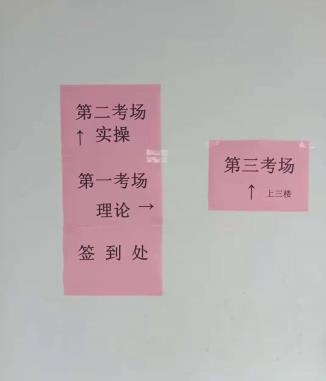 第二考场
↑ 实操
第一考场
理论 →
签到处
第三考场
↑ 上三楼